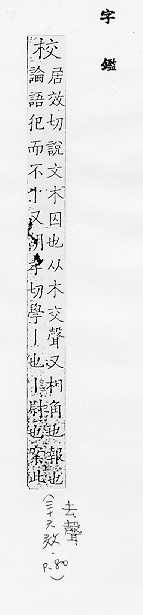 字鑑
校
居效切說文木囚也从木交聲又相角也報也
論語犯而不丨又胡孝切學丨也丨尉也案此
去聲
(三十六效,
P.80)